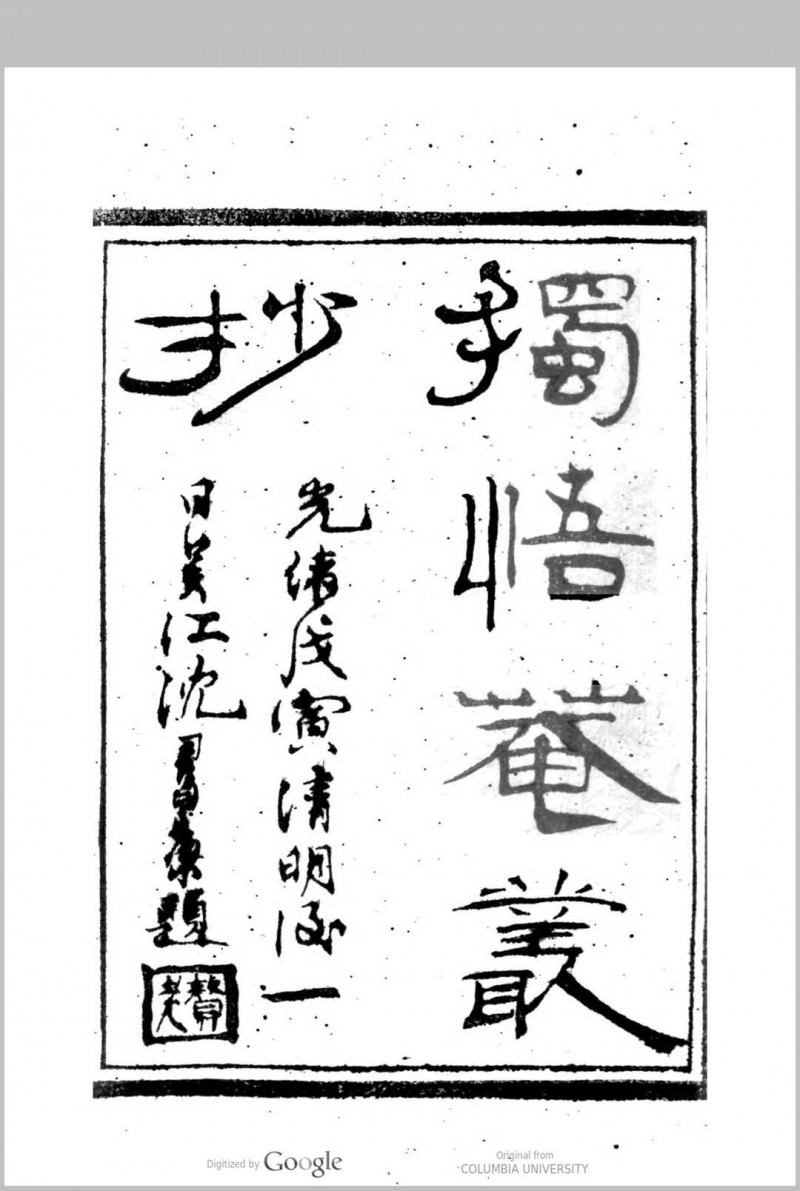 獨悟菴叢
抄
光緒戊寅清明後一
日吳江沈康題
Digitized by Google
Original from
COLUMBIA UNIVERSITY